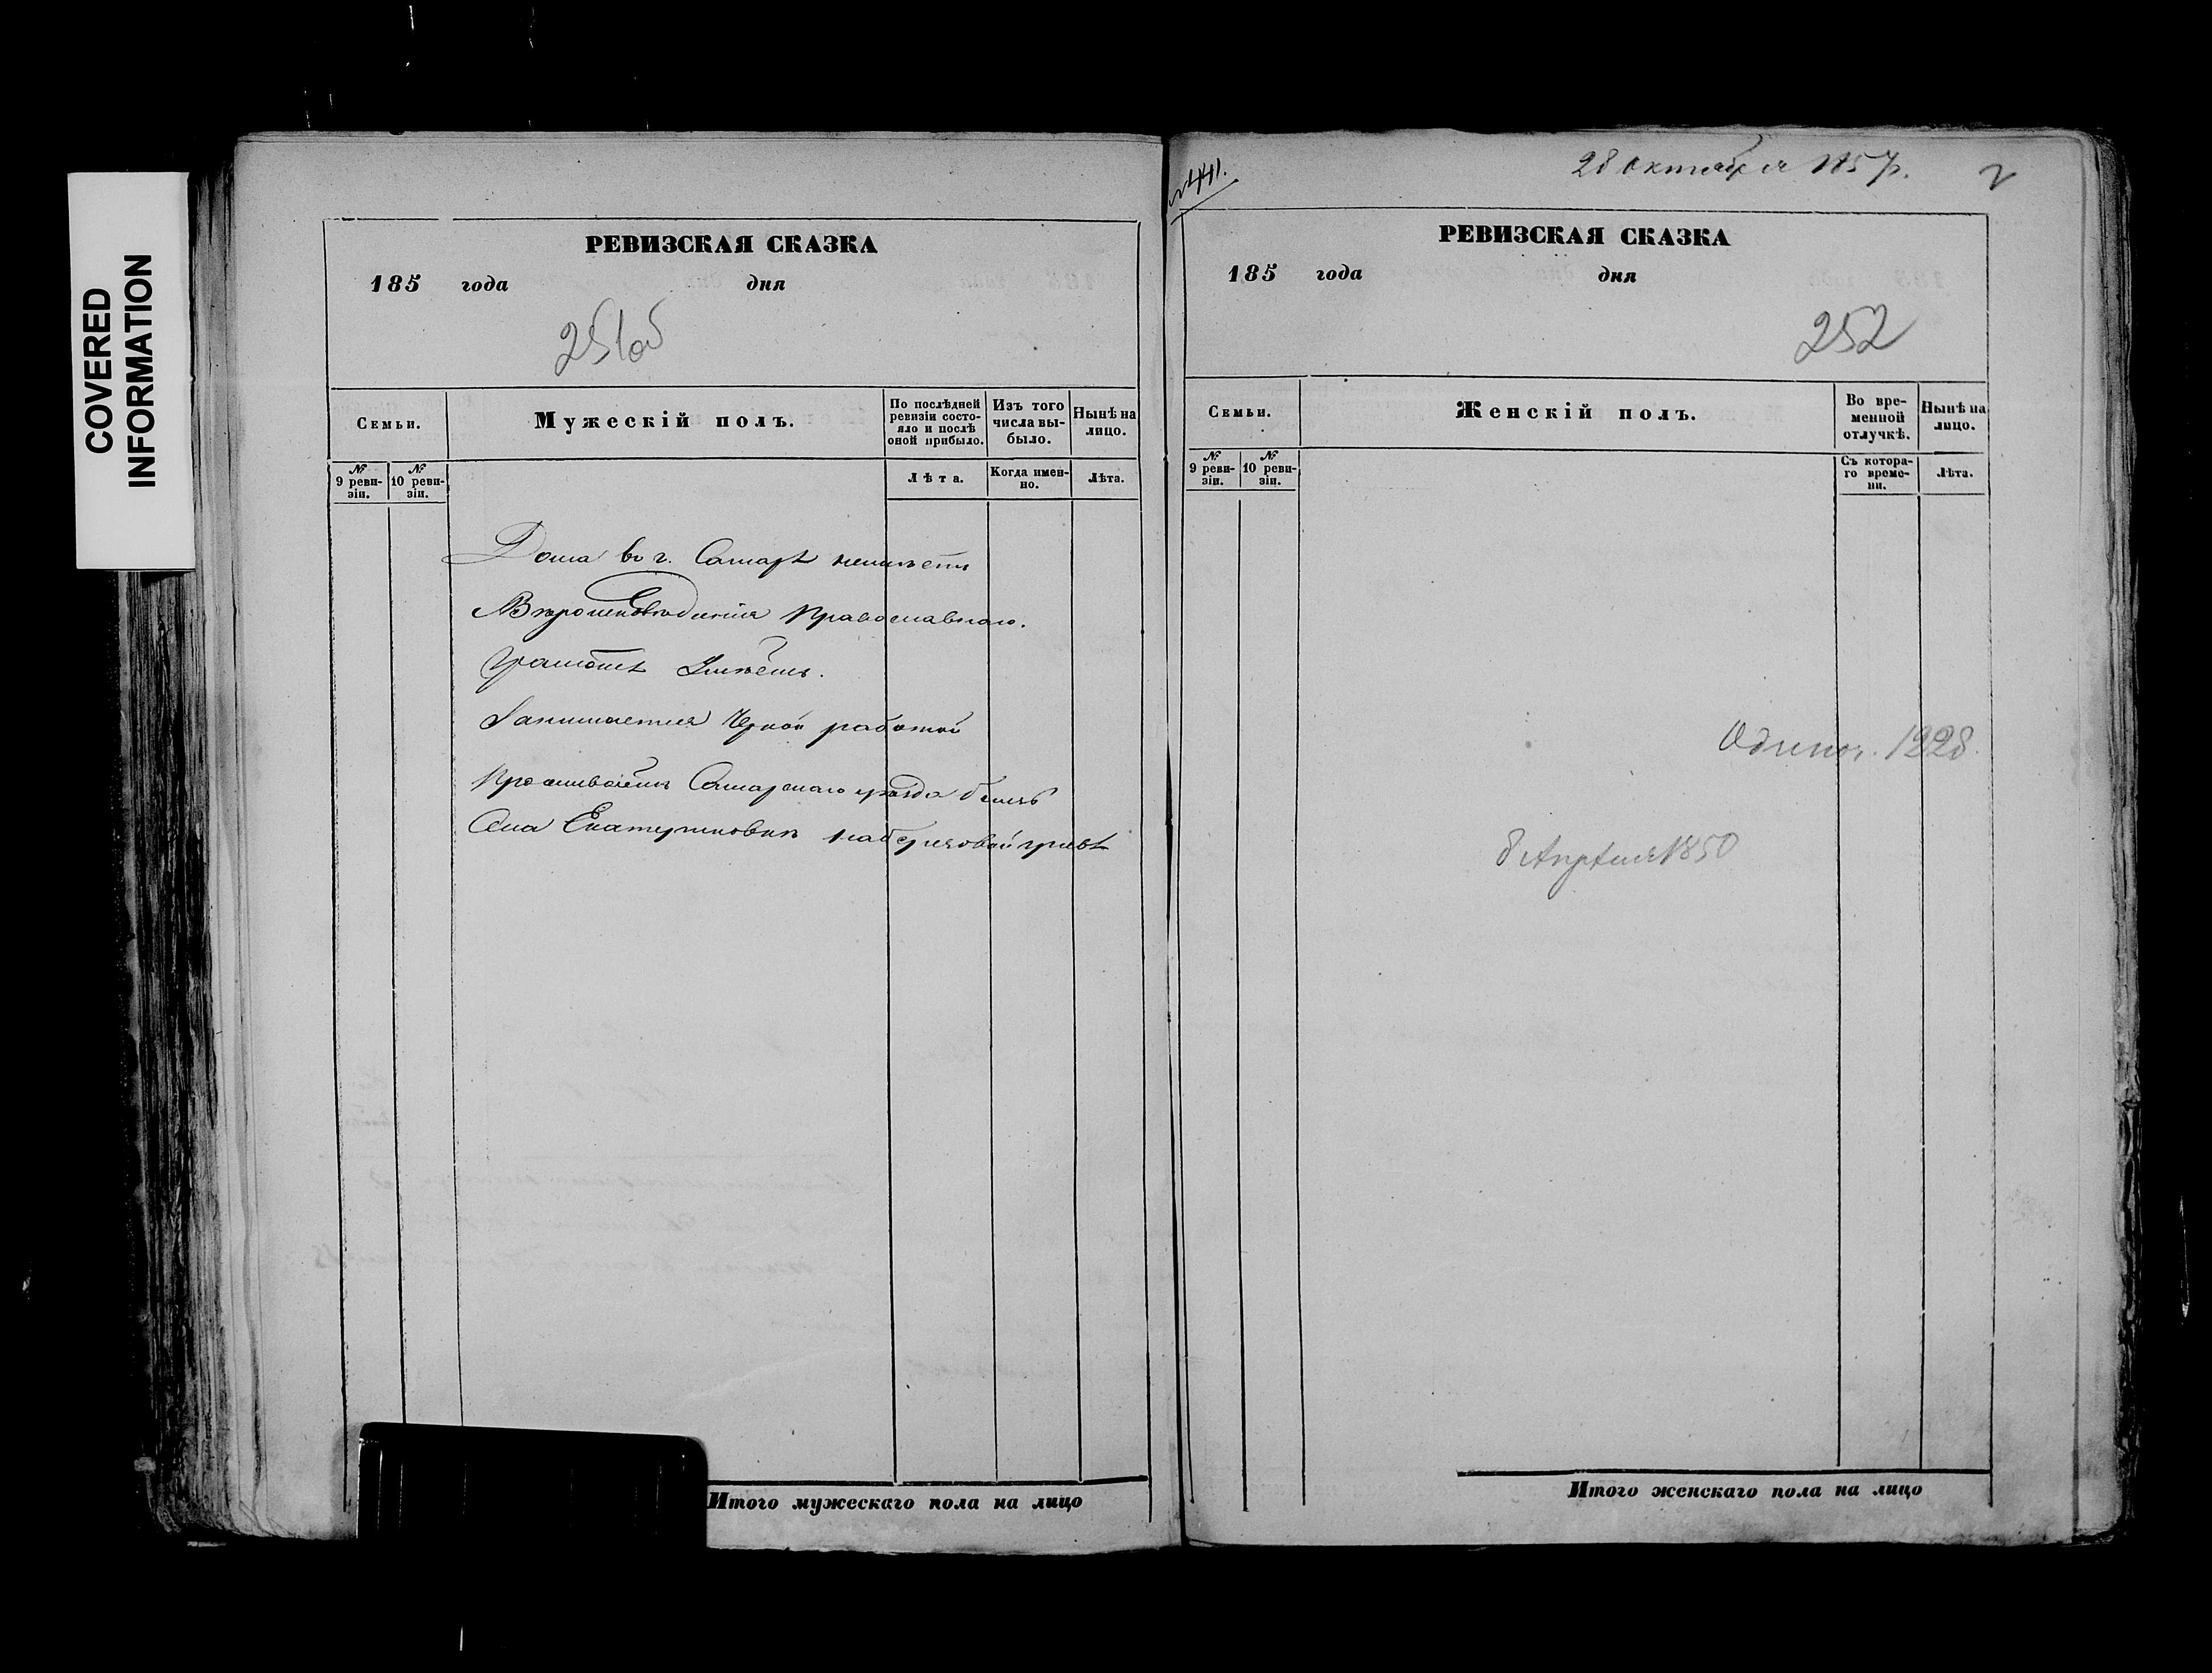 COVERED
INFORMATION
РЕВИЗСКАЯ СКАЗКА
185 года дня
251об
Семьи.
Мужескій полъ.
По послѣдней ревизіи состояло и послѣ оной прибыло.
Изъ того числа выбыло.
Нынѣ на лицо.
№ 9 ревизіи.
№ 10 ревизіи.
Лѣта.
Когда именно.
Лѣта.
Дома въ г. Самарѣ неимѣетъ
Вѣроисповѣданія Православнаго.
Грамотѣ Умѣетъ.
Занимается Черной работой
Проживаетъ Самарскаго уѣзда близъ
Села Екатериновки на березовой гривѣ
Итого мужескаго пола на лицо
№441.
28 Октября 1857г.
РЕВИЗСКАЯ СКАЗКА
185 года дня
252
Семьи.
Женскій полъ.
Во временной отлучкѣ.
Нынѣ на лицо.
№ 9 ревизіи.
№ 10 ревизіи.
Съ котораго времени.
Лѣта.
Одинок. 1228.
8 Апрѣля 1850
Итого женскаго пола на лицо